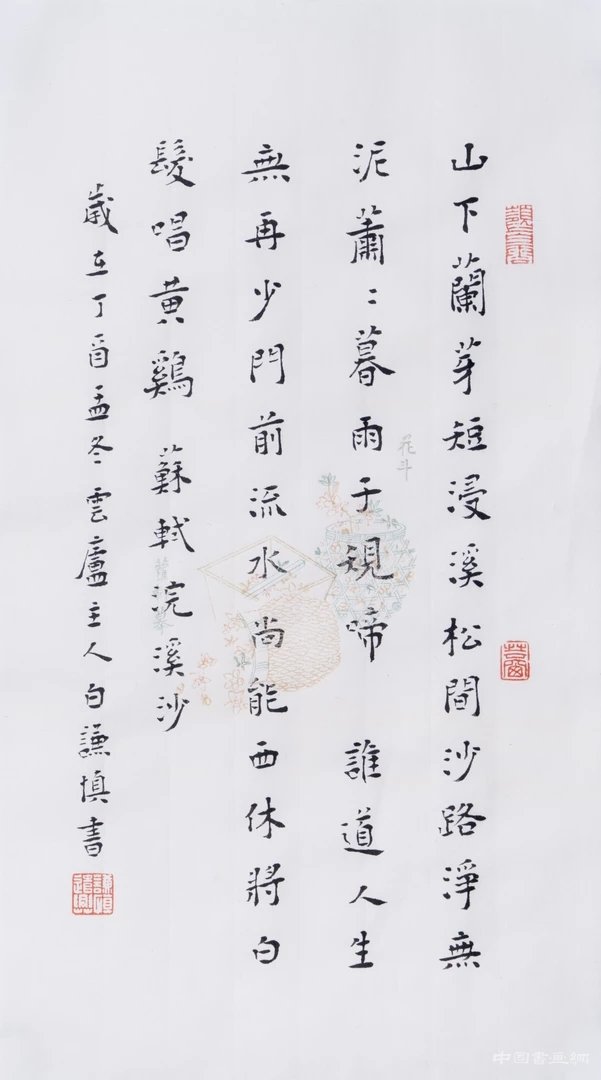 山下蘭芽短浸溪松間沙路淨無
泥蕭〻暮雨子規啼 誰道人生
無再少門前流水尚能西休將白
髮唱黃鷄 蘇軾浣溪沙
歲在丁酉孟冬雲廬主人白謙慎書
花斗
中国書画網